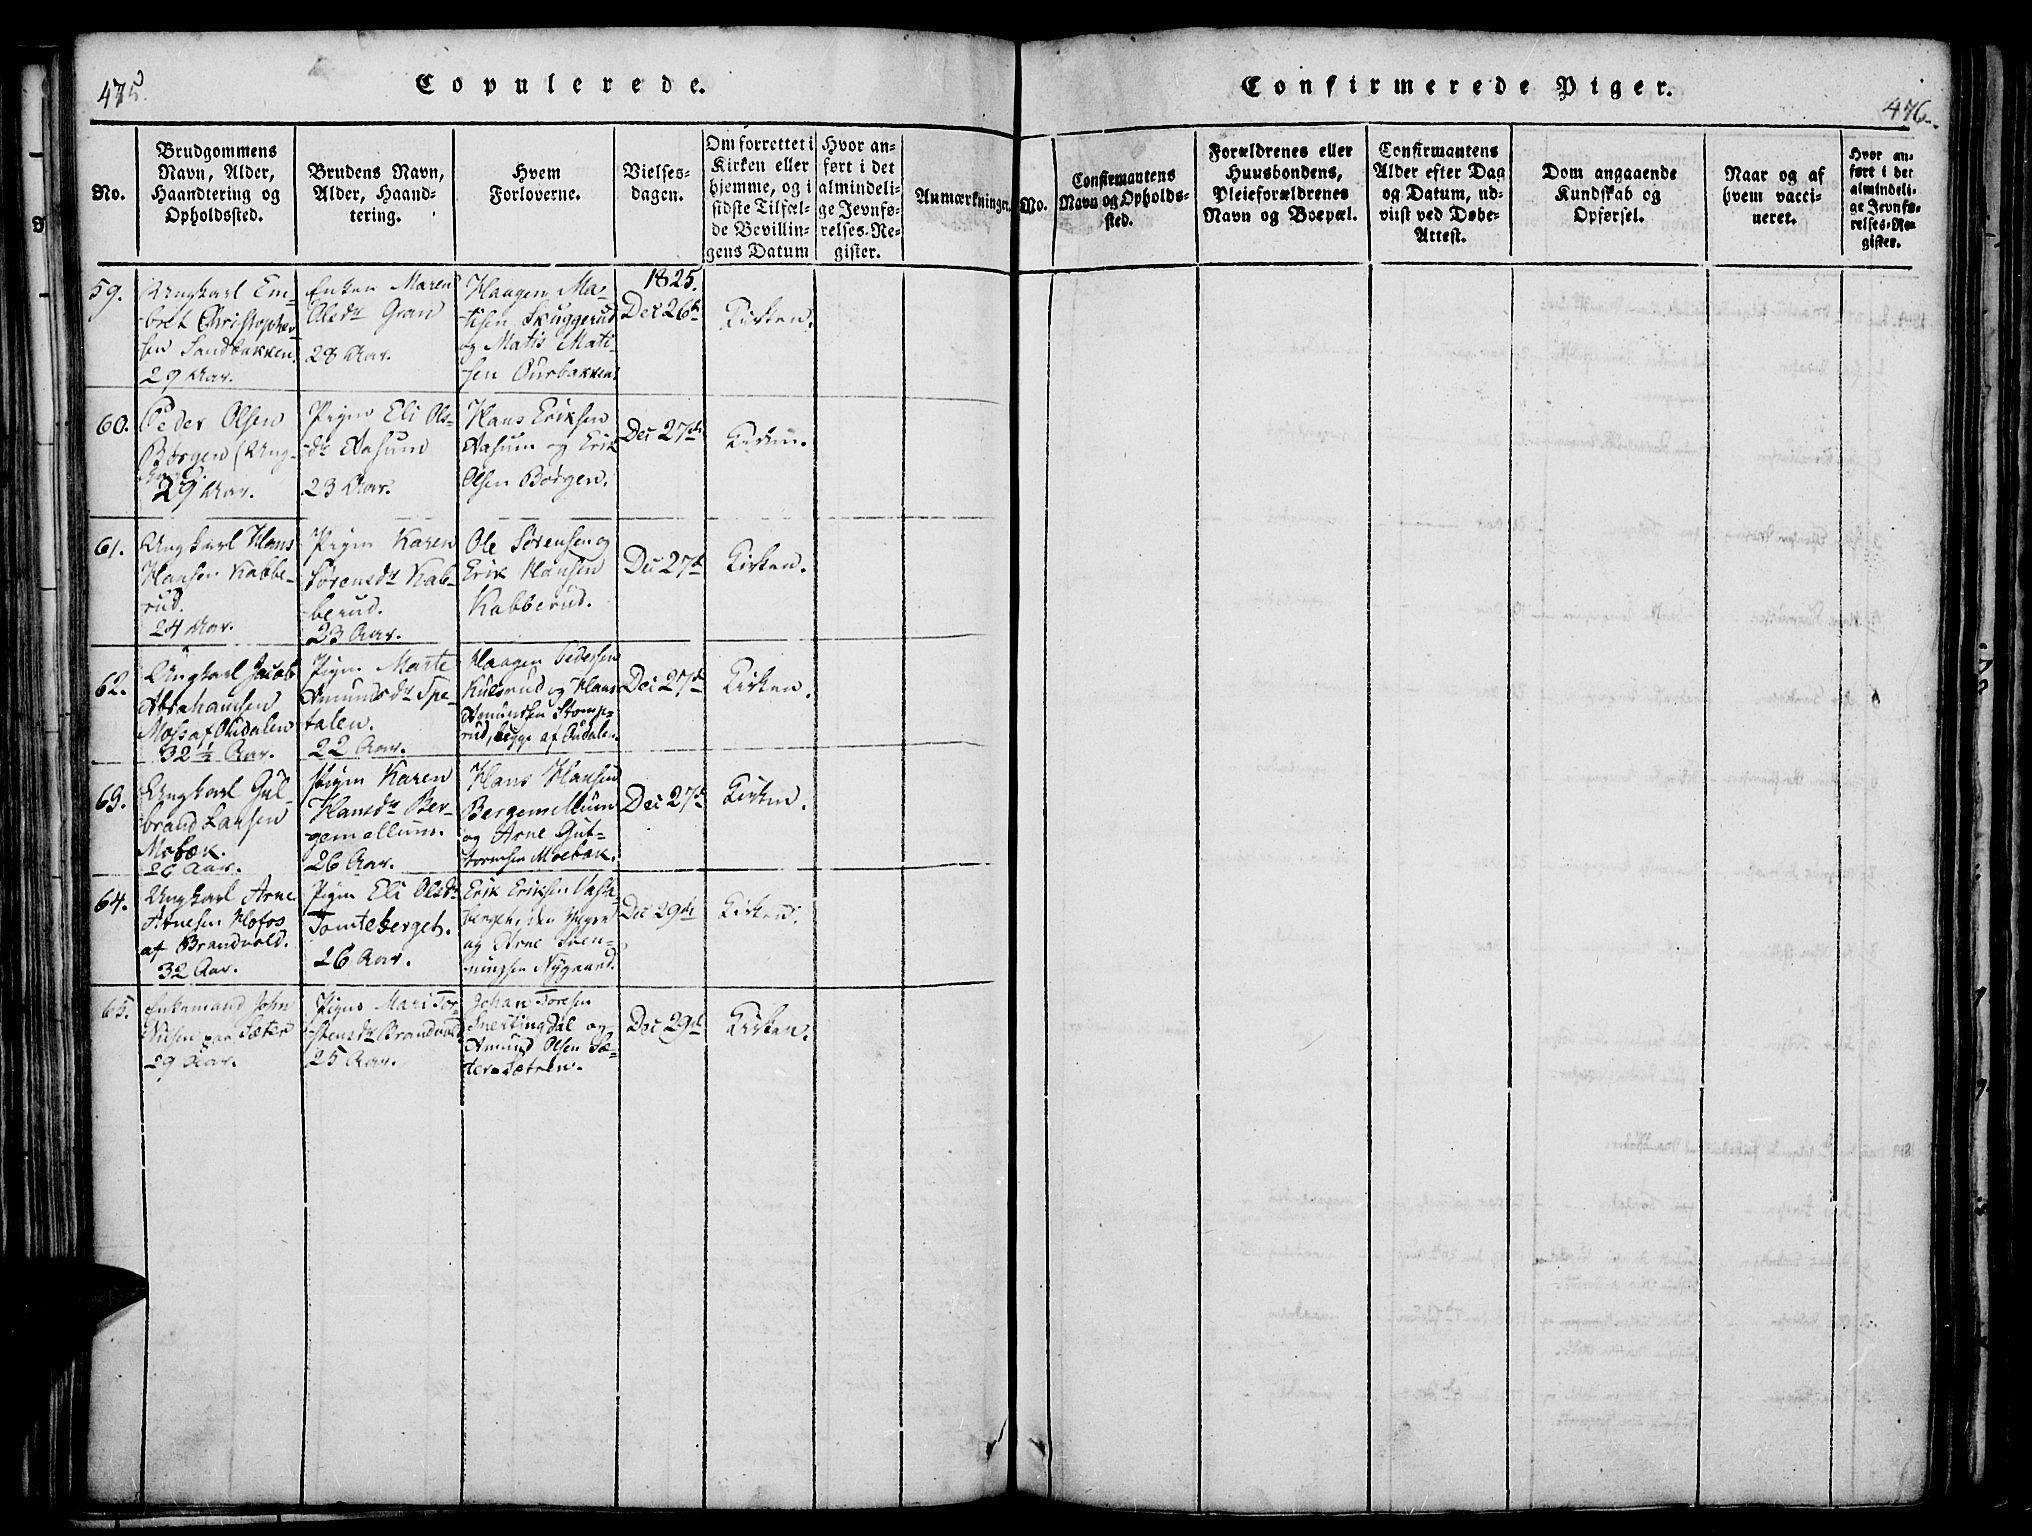 475.
Copulerede.
No.
Brudgommens
Navn, Alder,
Haandtering og
Opholdssted.
Brudens Navn,
Alder, Haand-
tering.
Hvem
Forloverne.
Vielses-
dagen.
Om forrettet i
Kirken eller
hjemme, og i
sidste Tilfæl-
de Bevillin-
gens Datum
Hvor an-
ført i det
almindeli-
ge Jevnfø-
relses-Re-
gister.
Anmærkninger.
59.
Ungkarl Em-
bret Christopher-
sen Sandbakken,
29 Aar.
Enken Maren
Olsdr Gran
28 Aar.
Haagen Ma-
tisen Skuggerud
og Matis Mati-
sen Ourbakken.
1825.
Dec 26de
Kirken.
60.
Peder Olsen
Børgen (Ung-
karl)
29 Aar.
Pigen Eli Ols-
dr Aasum
23 Aar.
Hans Eriksen
Aasum og Erik
Olsen Børgen.
Dec 27de
Kirken.
61.
Ungkarl Hans
Hansen Kabbe-
rud.
24 Aar.
Pigen Karen
Sørensdr Kab-
berud.
23 Aar.
Ole Sørensen og
Erik Hansen
Kabberud.
Dec 27de
Kirken.
62.
Ungkarl Jacob
Abrahamsen
Moss af Oudalen
32 ½ Aar.
Pigen Marte
Amundsdr Spe-
talen.
22 Aar.
Haagen Pedersen
Kulsrud og Hans
Amundsen Stomp-
rud, begge af Oudalen.
Dec 27de
Kirken.
63.
Ungkarl Gul-
brand Larsen
Mobæk.
26 Aar.
Pigen Karen
Hansdr Ber-
gemellum.
26 Aar.
Hans Hansen
Bergemellum
og Arne Gut-
tormsen Moebæk.
Dec 27de
Kirken.
64.
Ungkarl Arne
Arnesen Hofos
af Brandvold.
32 Aar.
Pigen Eli Olsdr
Tomteberget.
26 Aar.
Erik Eriksen
berget, den Yngre
og Arne Sven-
ningsen Nygaard.
Dec 29de
Kirken.
65.
Enkemand John
Nilsen paa Sæter
29 Aar.
Pigen Mari Tor-
stensdr Brandvold
25 Aar.
Johan Toresen
Snertingdal og
Amund Olsen Sæ-
ter-Sætren.
Dec 29de
Kirken.
Confirmerede Piger.
476.
No.
Confirmantens
Navn og Opholds-
sted.
Forældrenes eller
Huusbondens,
Pleieforældrenes
Navn og Boepæl.
Confirmantens
Alder efter Dag
og Datum, ud-
viist ved Døbe-
Attest.
Dom angaaende
Kundskab og
Opførsel.
Naar og af
hvem vacci-
neret.
Hvor an-
ført i det
almindeli-
ge Jevnfø-
relses-Re-
gister.